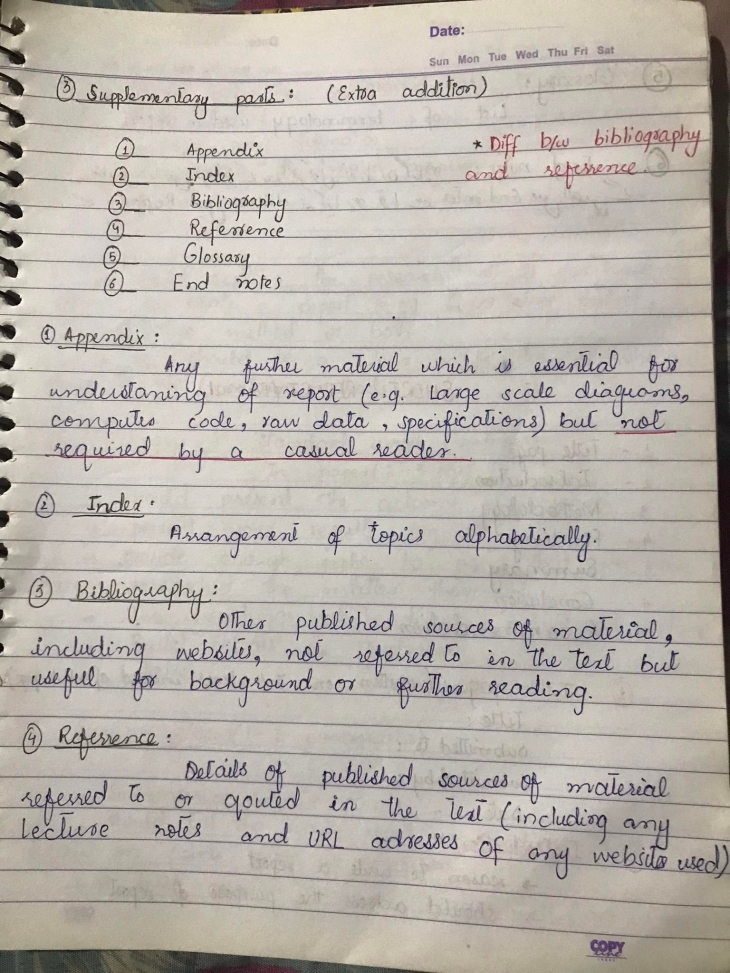 Date:
Sun Mon Tue Wed Thu Fri Sat
③ Supplementary parts: (Extra addition)
① Appendix
* Diff b/w bibliography
② Index
and reference
③ Bibliography
④ Reference
⑤ Glossary
⑥ End notes
① Appendix:
Any further material which is essential for
understaning of report (e.g. large scale diagrams,
computer code, raw data, specifications) but not
required by a casual reader.
② Index:
Arrangement of topics alphabetically.
③ Bibliography:
Other published sources of material,
including websites, not referred to in the text but
useful for background or further reading.
④ Reference:
Details of published sources of material
referred to or qouted in the text (including any
lecture notes and URL adresses of any website used)
COPY